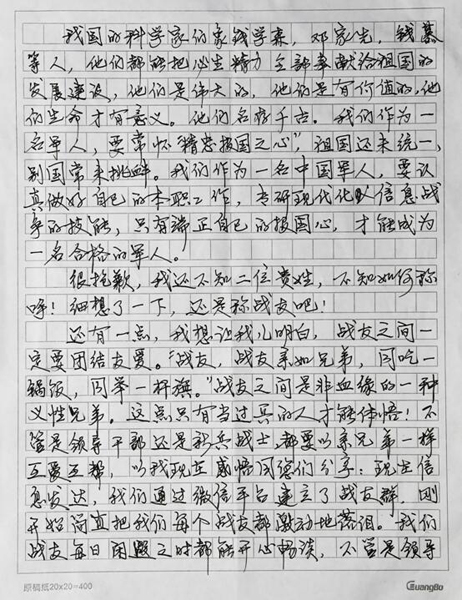 我国的科学家们象钱学森，邓家先，钱
等人，他们都能把心生精力全部奉献给祖国的
发展建设，他们是伟大的，他们是有价值的，他
们的生命才有意义。他们名标千古。我们作为一
名军人，要常怀"精忠报国之心"，祖国还未统一，
别国常来挑衅。我们作为一名中国军人，要认
真做好自己的本职工作，专研现代化以信息战
争的技能，只有端正自己的报国心，才能成为
一名合格的军人。
很抱歉，我还不知二位贵姓，不知如何称
呼！细想了一下，还是称战友吧！
还有一点，我想让我儿明白，战友之间一
定要团结友爱。"战友，战友亲如兄弟，同吃一
锅饭，同举一杆旗。"战友之间是非血缘的一种
义性兄弟。这点只有当过兵的人才能体悟！不
管是领导干部还是新兵战士，都要以亲兄弟一样
互爱互帮，以我现在感悟同您们分享：现在信
息发达，我们通过微信平台建立了战友群，刚
开始简直把我们每个战友都激动地落泪。我们
战友每日闲暇之时都能开心畅谈，不管是领导
原稿纸20x20=400
GuangBo